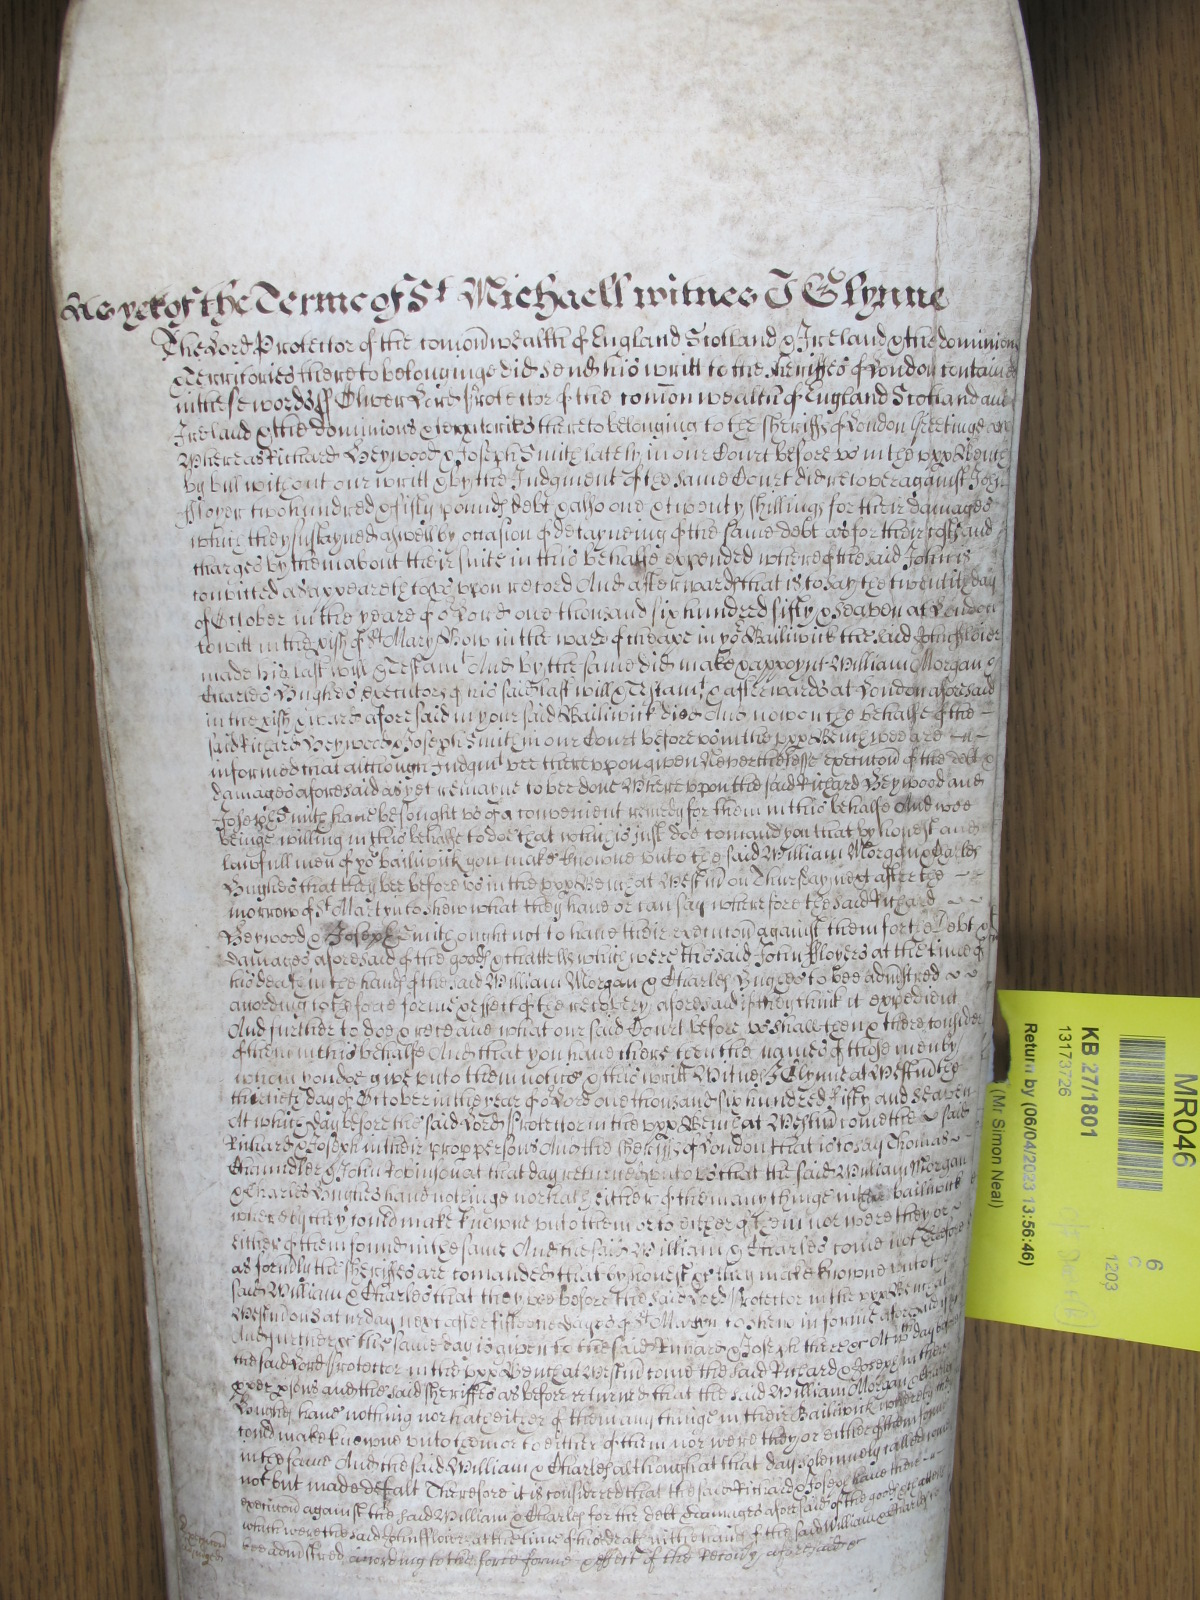 As yet of the Terme of St Michaell witnes J Glynne
The Lord Protector of the comonwealth of England Scotland & Ireland & the dominions
& Territories thereto belonginge did send his writt to the Sheriffes of London contained
in these words ss Oliver Lord Protector of the comon wealth of England Scotland and
Ireland & the dominions & territories thereto belonging to the Sheriffs of London greetinge
Whereas Richard Heywood & Joseph Smith lately in our Court before us in the upp Bench
by bill without our writt & by the Judgment of the same Court did recover against John
ffloyer two hundred & fifty pounds debt & also one & twenty shillings for their damages
which they sustayned aswell by occasion of detayneing of the same debt as for their costs and
charges by them about their suite in this behalfe expended whereof the said John is
convicted as appeareth to us upon record And afterwards that is to say the twentith day
of October in the yeare of or Lord one thousand six hundred fifty & seaven at London
to witt in the pish of St Mary Bow in the ward of Cheape in yor Bailiwick the said John ffloier
made his last will & Testamt And by the same did make & appoynt William Morgan &
Charles Hughes executors of his said last will & Testamt & afterwards at London aforesaid
in the pish & ward aforesaid in your said Bailiwick died And now on the behalfe of the
said Richard Heywood & Joseph Smith in our Court before us in the upp Bench wee are
informed that although Judgmt bee thereupon given Neverthelesse execucon of the debt &
damages aforesaid as yet remayne to bee done Whereupon the said Richard Heywood and
Joseph Smith have besought us of a convenient remedy for them in this behalfe And wee
beinge willing in this behalfe to doe that which is just doe comand you that by honest and
lawfull men of yor bailiwick you make knowne unto the said William Morgan & Charles
Hughes that they bee before us in the upp Bench at Westm on Thursday next after the
morrow of St Martin to shew what they have or can say wherefore the said Richard
Heywood & Joseph Smith ought not to have their execucon against them for the Debt &
damages aforesaid of the goods & chattells which were the said John ffloyers at the time of
his death in the hands of the said William Morgan & Charles Hughes to bee admstred
according to the force forme & effect of the recovery aforesaid if they think it expedient
And further to doe & receave what our said Court before us shall then & there consider
of them in this behalfe And that you have there then the names of those men by
whom you doe give unto them notice & this writt Witnes J Glynne at Westm the
day of October in the yeare of or Lord one thousand six hundred fifty and seaven
At which day before the said Lord Protector in the upp Bench at Westm come the said
Richard & Joseph in their proper persons And the Sheriffs of London that is to say Thomas
Chandler & John Robinson at that day returned unto us that the said William Morgan
& Charles Hughes have nothinge nor hath either of them any thinge in their bailiwick
whereby they could make knowne unto them or to either of them nor were they or
either of them found in the same And the said William & Charles come not Therefore
as formly the Sheriffes are comanded that by honest &c they make knowne unto the
said William & Charles that they bee before the said Lord Protector in the upp Bench at
Westm on Saturday next after fifteene dayes of St Martin to shew in forme aforesaid if
And further &c the same day is given to the said Richard & Joseph there &c At wch day before
the said Lord Protector in the upp Bench at Westm come the said Richard & Joseph in their
pper psons and the said Sheriffes as before returned that the said William Morgan & Charles
Hughes have nothing nor hath either of them any thinge in their Bailiwick whereby they
could make knowne unto them or to either of them nor were they or either of them found
in the same And the said William & Charles although at that day solemnely called come
not but made default Therefore it is considered that the said Richard & Joseph have their
execucon against the said William & Charles for the debt & damages aforesaid of the goods & chattells
which were the said John ffloiers at the time of his death in the hands of the said William & Charles to
bee admstred according to the force forme & effect of the recovery aforesaid &c
MR046
KB 27/1801
13173726
Return by (06/04/2023 13:56:46)
(Mr Simon Neal)
6
C
1203